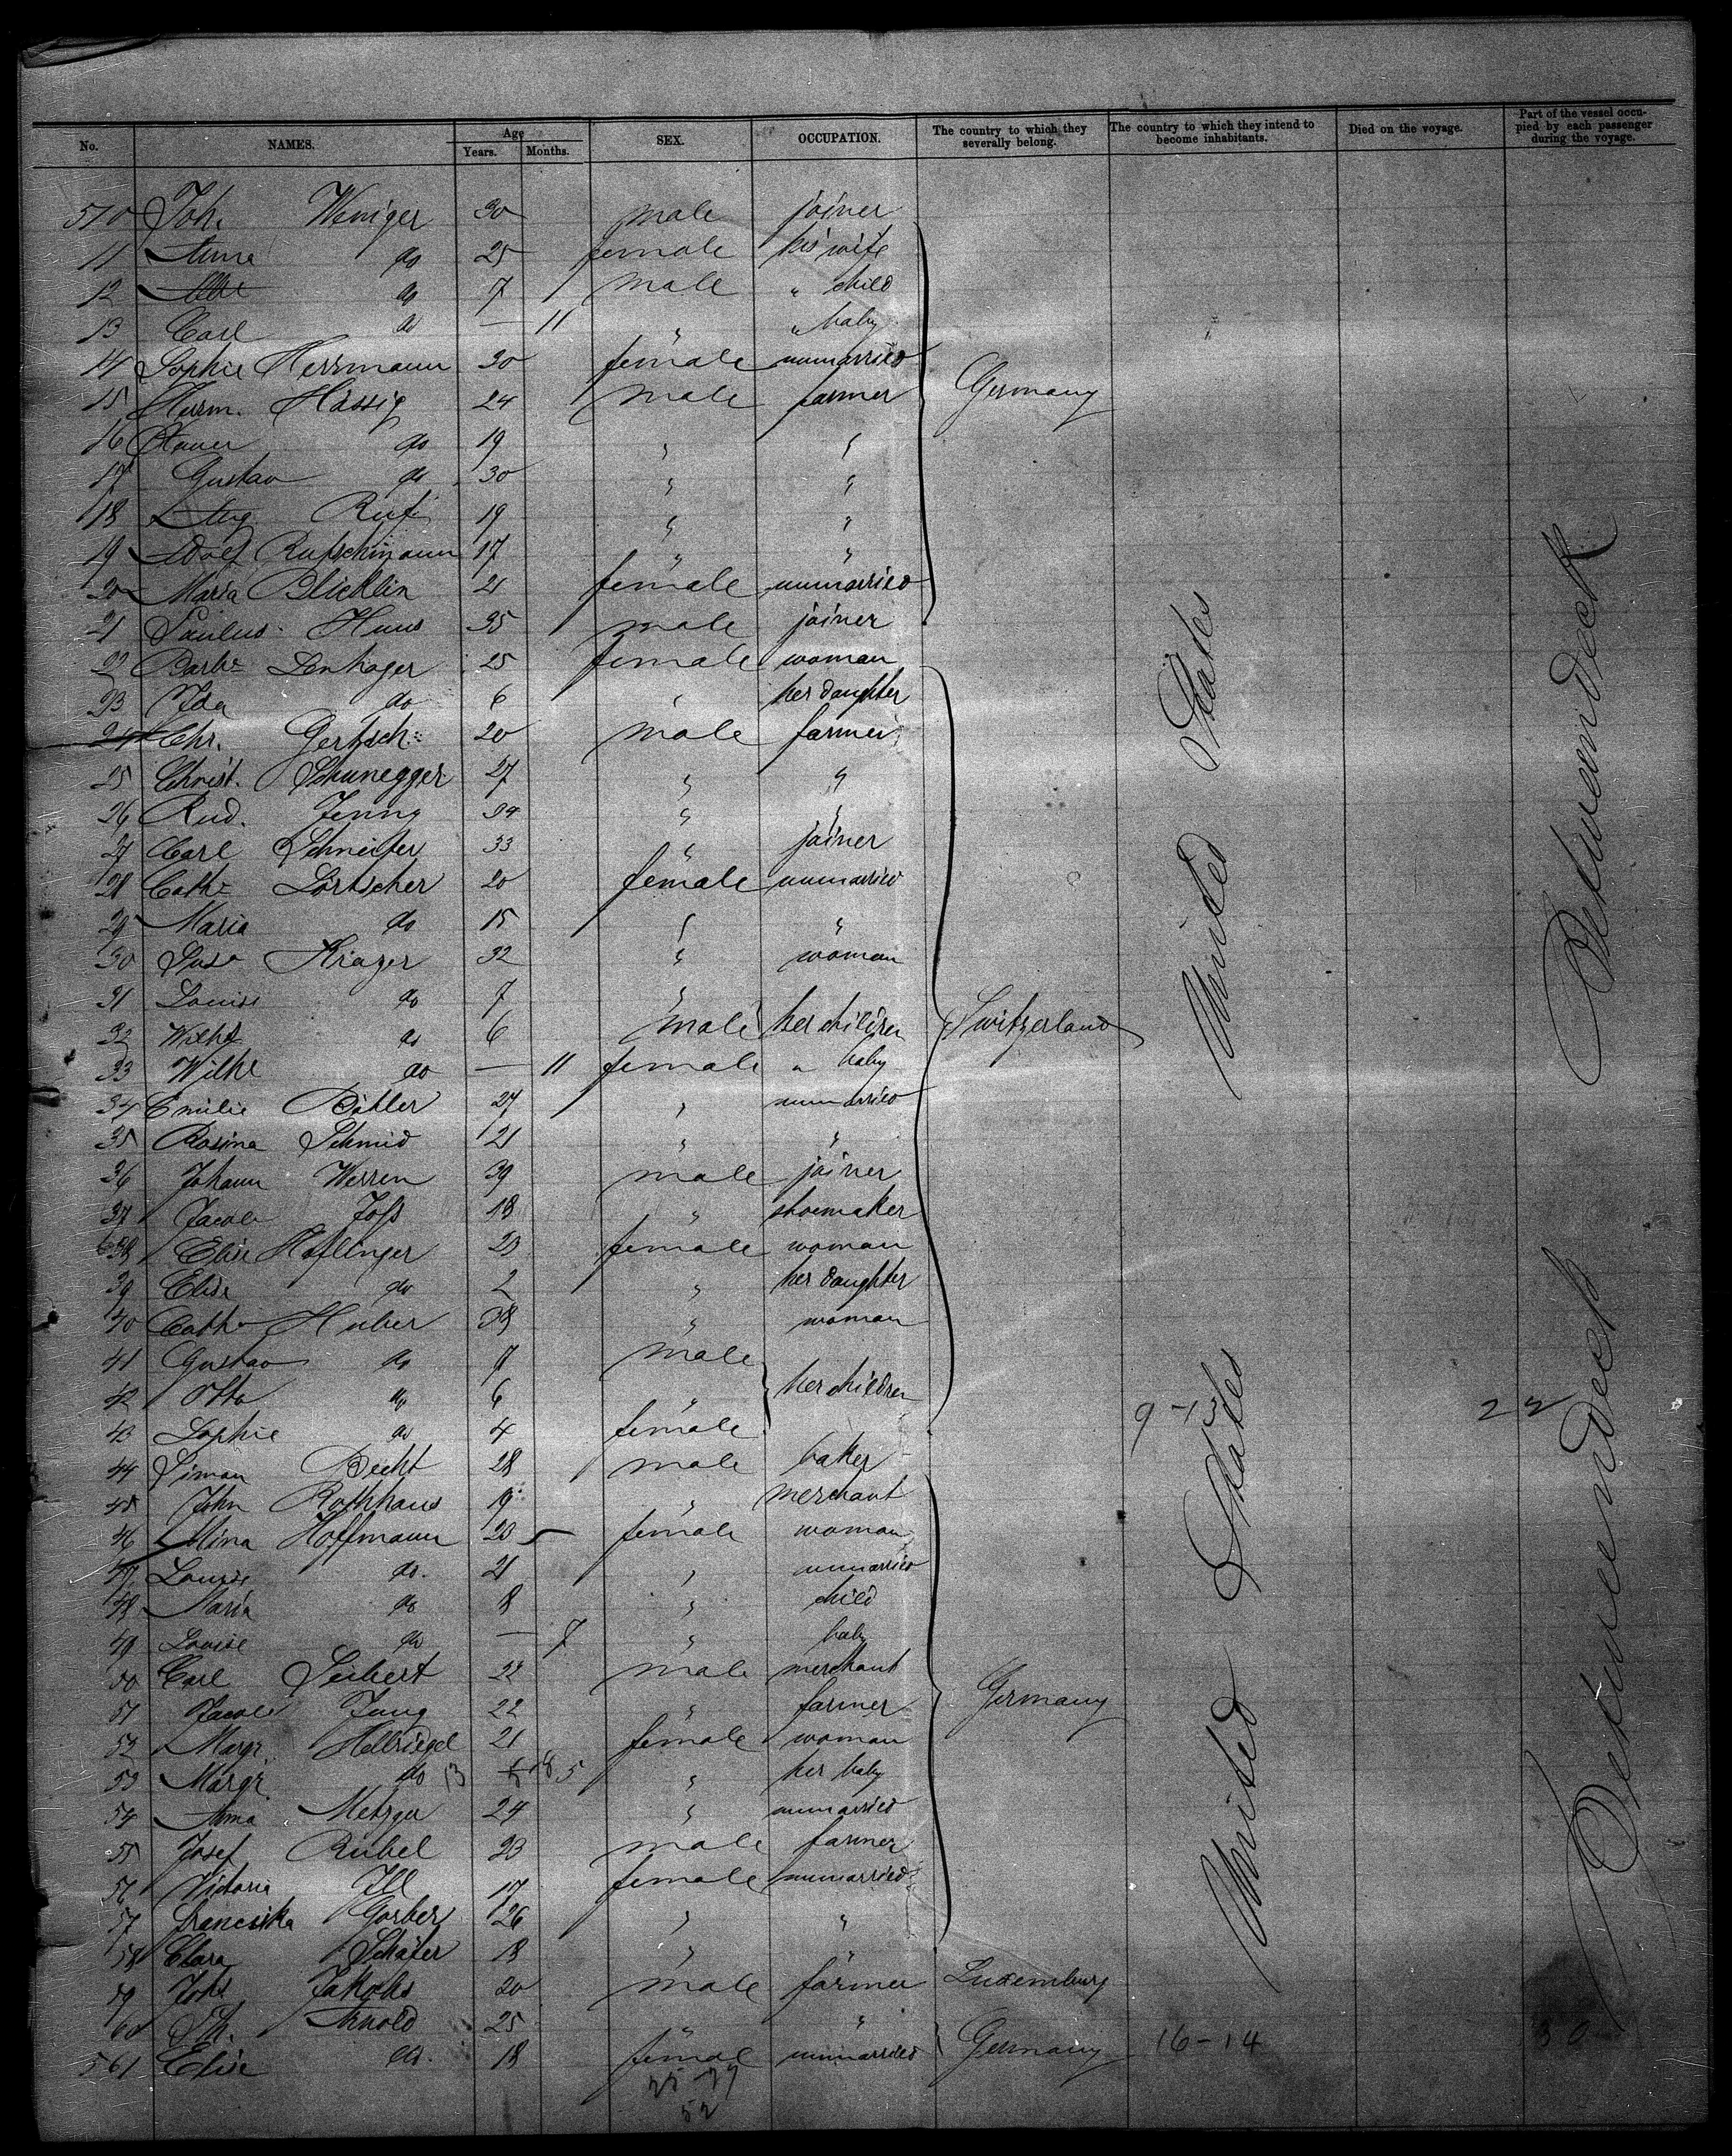 No. NAMES. Age Years. Months. SEX. OCCUPATION. The country to which they severally belong. The country to which they intend to become inhabitants. Died on the voyage. Part of the vessel occupied by each passenger during the voyage.
510 Joh. Weniger 30 male joiner
11 Anna do 25 female his wife
12 do 7 male " child
13 Carl do — 11 " " baby
14 Sophie Herrmann 30 female unmarried
15 Herm. Hässig 24 male farmer Germany
16 do 19 " "
17 Gustav do 30 " "
18 Aug Ruf 19 " "
19 Adolf Rutschmann 17 " "
20 Maria Blicklin 21 female unmarried
21 Paulus Huus 35 male joiner
22 Barb. Lenhager 25 female woman
23 Ida do 6 " her daughter
24 Chr. Gertsch 20 male farmer
25 Christ. Schunegger 27 " "
26 Rud. Jenny 34 " "
27 Carl Schneiter 33 " joiner
28 Cath. Lörtscher 20 female unmarried
29 Maria do 15 " "
30 Susa Krazer 32 " woman
31 Louise do 7 "
32 Wilh do 6 male her children Switzerland
33 Wilhe do — 11 female " baby
34 Emilie Bähler 27 " unmarried
35 Rosina Schmid 21 " "
36 Johann Werren 39 male joiner
37 Jacob Joss 18 " shoemaker
38 Elise Haflinger 23 female woman
39 Elise do 2 " her daughter
40 Cath. Huber 38 " woman
41 Gustav do 7 male
42 Otto do 6 " her children
43 Sophie do 4 female
9-13 22
44 Simon Becht 28 male baker
45 John Rothhaus 19 " merchant
46 Mina Hoffmann 23 female woman
47 Louise do. 21 " unmarried
48 Maria do 8 " child
49 Louise do — 7 " baby
50 Carl Seibert 22 male merchant
51 Jacob Jung 22 " farmer Germany
52 Margr. Hellriegel 21 female woman
53 Margr. do " her baby
54 Anna Metzger 24 " unmarried
55 Josef Rübel 23 male farmer
56 Victoria Ill 17 female unmarried
57 Franciska Gorber 26 " "
58 Clara Schäfer 18 "
59 Johs Jakobs 20 male farmer Luxemburg
60 Arnold 25 " "
561 Elise do. 18 female unmarried Germany 16-14 30
United States
United States
Betweendeck
Betweendeck
52